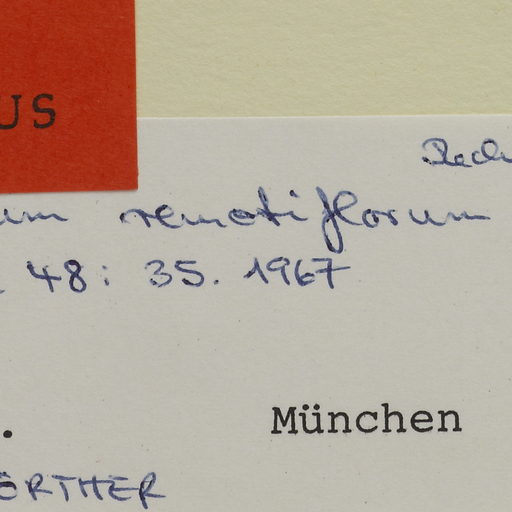 US
um remotiflorum
48: 35. 1967
. München
ÖRTHER